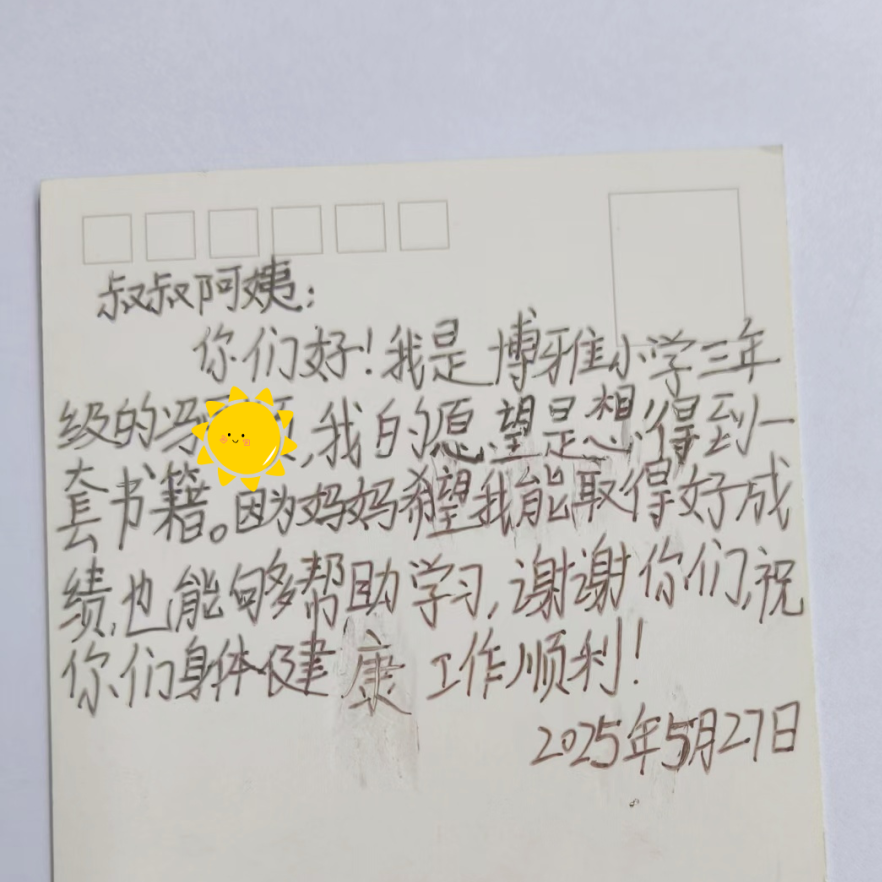 叔叔阿姨：
你们好！我是博雅小学三年
级的冯，我的愿望是想得到一
套书籍。因为妈妈希望我能取得好成
绩,也能够帮助学习,谢谢你们,祝
你们身体健康工作顺利！
2025年5月27日